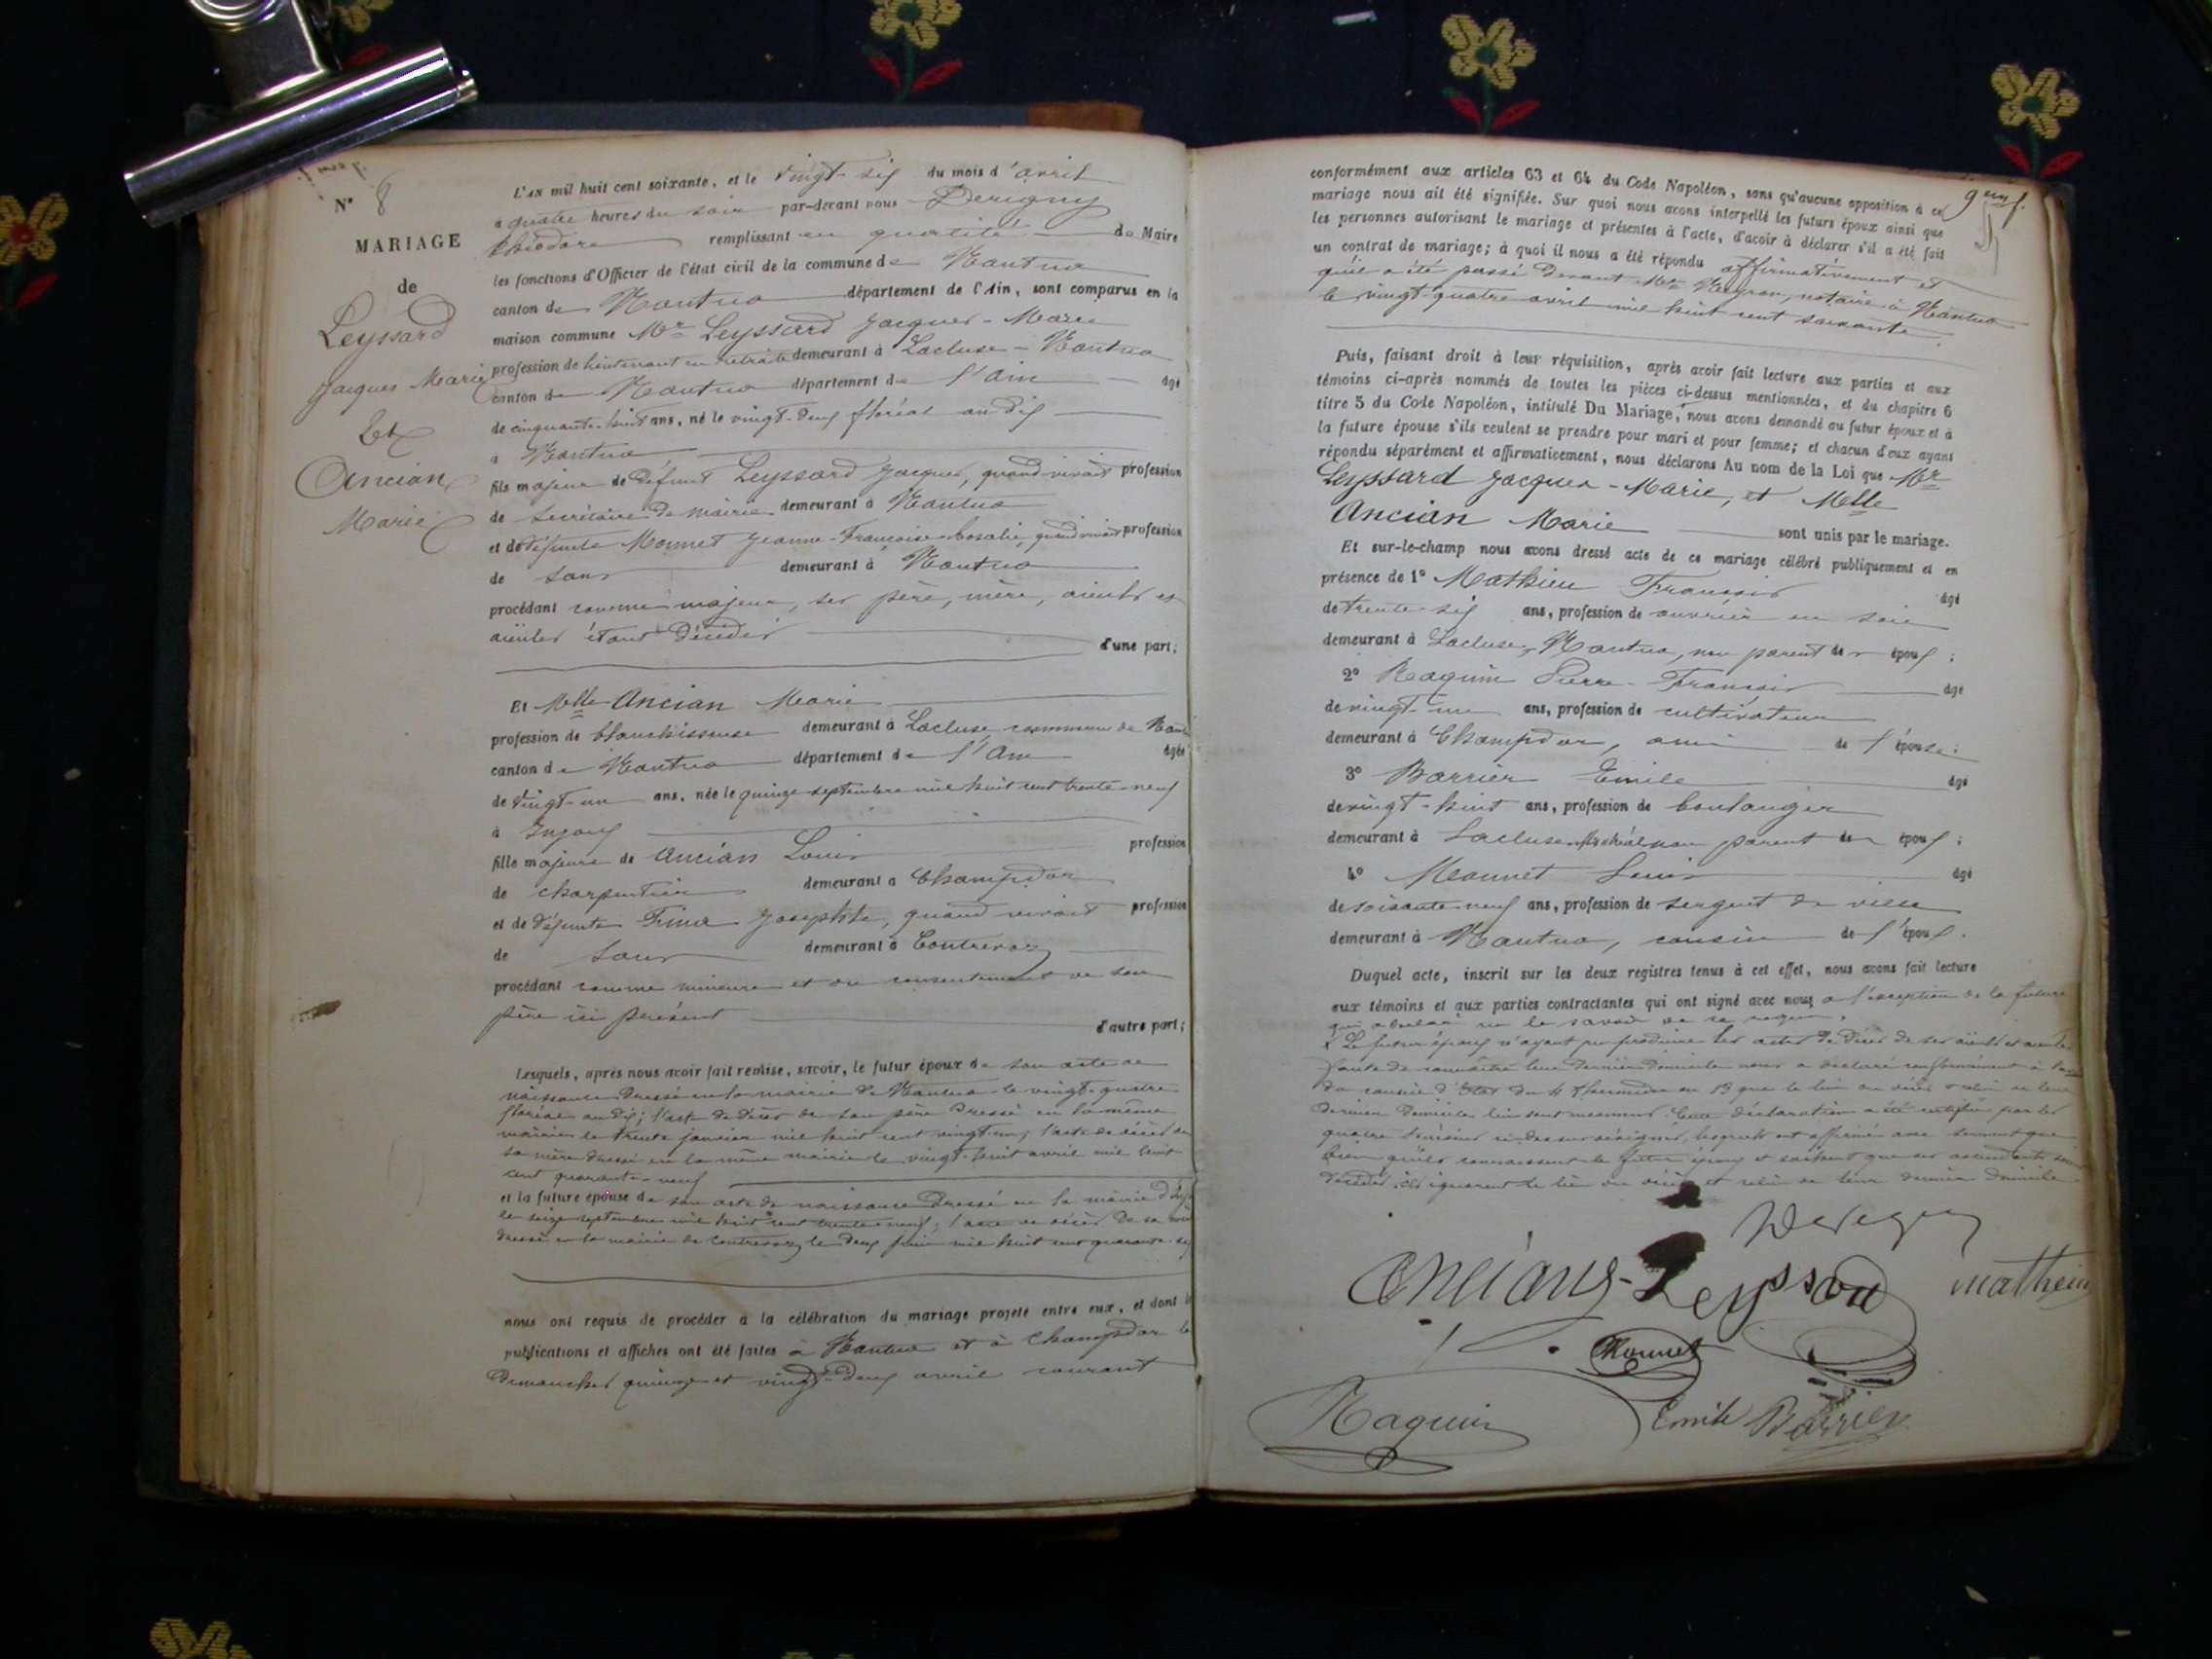 N° 8
MARIAGE
de
Leyssard
Jacques Marie
Et
Ancian
Marie
L'AN mil huit cent soixante, et le vingt-six du mois d'avril
à quatre heures du soir par-devant nous Derigny
théodore remplissant en qualité de Maire
les fonctions d'Officier de l'état civil de la commune de Nantua
canton de Nantua département de l'Ain, sont comparus en la
maison commune Mr Leyssard Jacques-Marie
profession de lieutenant en retraite demeurant à Lacluse-Nantua
canton de Nantua département de l'Ain âgé
de cinquante-huit ans, né le vingt-deux floréal an dix
à Nantua
fils majeur de défunt Leyssard Jacques, quand vivait profession
de secrétaire de mairie demeurant à Nantua
et de défunte Monnet Jeanne-Françoise-Rosalie, quand vivait profession
de sans demeurant à Nantua
procédant comme majeur, ses père, mère, aïeuls et
aïeules étant décédés d'une part;
Et Melle Ancian Marie
profession de blanchisseuse demeurant à Lacluse commune de Nantua
canton de Nantua département de l'Ain âgée
de vingt-un ans, née le quinze septembre mil huit cent trente-neuf
à Injoux
fille majeure de Ancian Louis profession
de charpentier demeurant à Champdor
et de défunte Josephte, quand vivait profession
de sans demeurant à Contrevoz
procédant comme mineure et du consentement de son
père ici présent d'autre part;
Lesquels, après nous avoir fait remise, savoir, le futur époux de son acte de
naissance dressé en la mairie de Nantua le vingt-quatre
floréal an dix; l'acte de décès de son père dressé en la même
mairie le trente janvier mil huit cent vingt-un; l'acte de décès de
sa mère dressé en la même mairie le vingt-huit avril mil huit
cent quarante-neuf
et la future épouse de son acte de naissance dressé en la mairie d'Injoux
le seize septembre mil huit cent trente-neuf; l'acte de décès de sa mère
dressé en la mairie de Contrevoz le deux juin mil huit cent quarante-six
nous ont requis de procéder à la célébration du mariage projeté entre eux, et dont les
publications et affiches ont été faites à Nantua et à Champdor les
dimanches quinze et vingt-deux avril courant
9 neuf.
conformément aux articles 63 et 64 du Code Napoléon, sans qu'aucune opposition à ce
mariage nous ait été signifiée. Sur quoi nous avons interpellé les futurs époux ainsi que
les personnes autorisant le mariage et présentes à l'acte, d'avoir à déclarer s'il a été fait
un contrat de mariage; à quoi il nous a été répondu affirmativement et
qu'il a été passé devant Me notaire à Nantua
le vingt-quatre avril mil huit cent soixante.
Puis, faisant droit à leur réquisition, après avoir fait lecture aux parties et aux
témoins ci-après nommés de toutes les pièces ci-dessus mentionnées, et du chapitre 6
titre 5 du Code Napoléon, intitulé Du Mariage, nous avons demandé au futur époux et à
la future épouse s'ils veulent se prendre pour mari et pour femme; et chacun d'eux ayant
répondu séparément et affirmativement, nous déclarons Au nom de la Loi que Mr
Leyssard Jacques-Marie, et Melle
Ancian Marie sont unis par le mariage.
Et sur-le-champ nous avons dressé acte de ce mariage célébré publiquement et en
présence de 1° Mathieu François âgé
de trente-six ans, profession de ouvrier en soie
demeurant à Lacluse, Nantua, non parent des époux;
2° Raquin Pierre-François âgé
de vingt-un ans, profession de cultivateur
demeurant à Champdor, ami de l'épouse;
3° Barrier Emile âgé
de vingt-huit ans, profession de boulanger
demeurant à Lacluse, non parent des époux;
4° Monnet Louis âgé
de soixante-neuf ans, profession de sergent de ville
demeurant à Nantua, cousin de l'époux.
Duquel acte, inscrit sur les deux registres tenus à cet effet, nous avons fait lecture
aux témoins et aux parties contractantes qui ont signé avec nous à l'exception de la future
qui a déclaré ne le savoir de ce requise.
Le futur époux n'ayant pu produire les actes de décès de ses aïeuls et aïeules
faute de connaître leur dernier domicile nous a déclaré conformément à l'avis
du conseil d'Etat du 4 thermidor an 13 que le lieu du décès et celui de leur
dernier domicile lui sont inconnus. Cette déclaration a été certifiée par les
quatre témoins ci-dessus désignés, lesquels ont affirmé avec serment que
bien qu'ils connaissent le futur époux et sachent que ses ascendants sont
décédés, ils ignorent le lieu du décès et celui de leur dernier domicile.
Derigny
Ancians Leyssard mathieu
Monnet
Raquin Emile Barrier